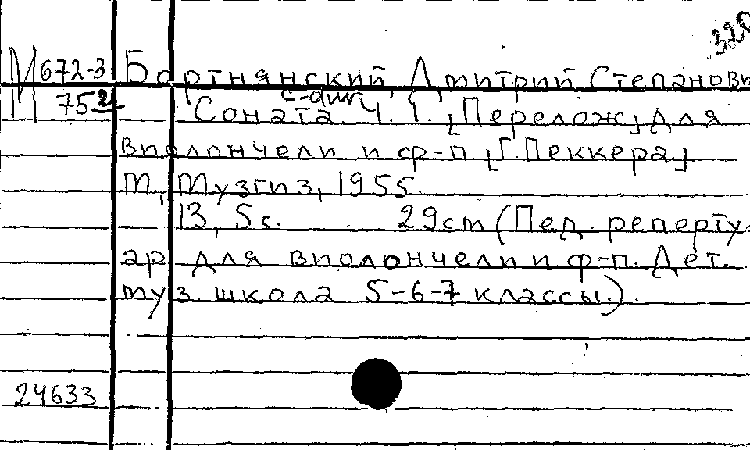 325
М 672-3 Бортнянский, Дмитрий Степанови
75 2 c-dur
Соната. Ч. 1. [Перелож] для
виолончели и ф-п [Г. Пеккера]
М, Музгиз, 1955.
13, 5 с. 29 см (Пед. реперту-
ар для виолончели и ф-п. Дет.
муз. школа 5-6-7 классы.)
24633